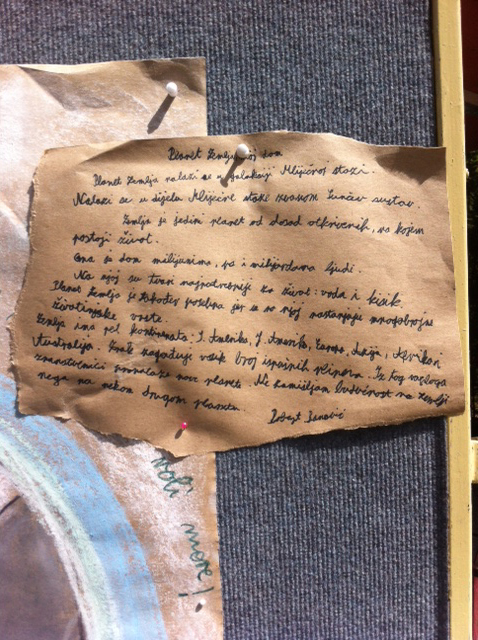 Planet Zemlja moj dom
Planet Zemlja nalazi se u galaksiji Mliječnoj stazi.
Nalazi se u dijelu Mliječne staze zvanom Sunčev sustav.
Zemlja je jedini planet od dosad otkrivenih, na kojem
postoji život.
Ona je dom milijunima, pa i milijardama ljudi.
Na njoj su tvari najpotrebnije za život: voda i kisik.
Planet Zemlja je također posebna jer se na njoj nastanjuju mnogobrojne
životinjske vrste.
Zemlja ima pet kontinenata: S. Amerika, J. Amerika, Europa, Azija, Afrika i
Australija. Zrak nagađuje velik broj ispušnih plinova. Iz tog razloga
znanstvenici pronalaze nove planete. Ne zamišljam budućnost na Zemlji
nego na nekom drugom planetu.
Janović
voli more!